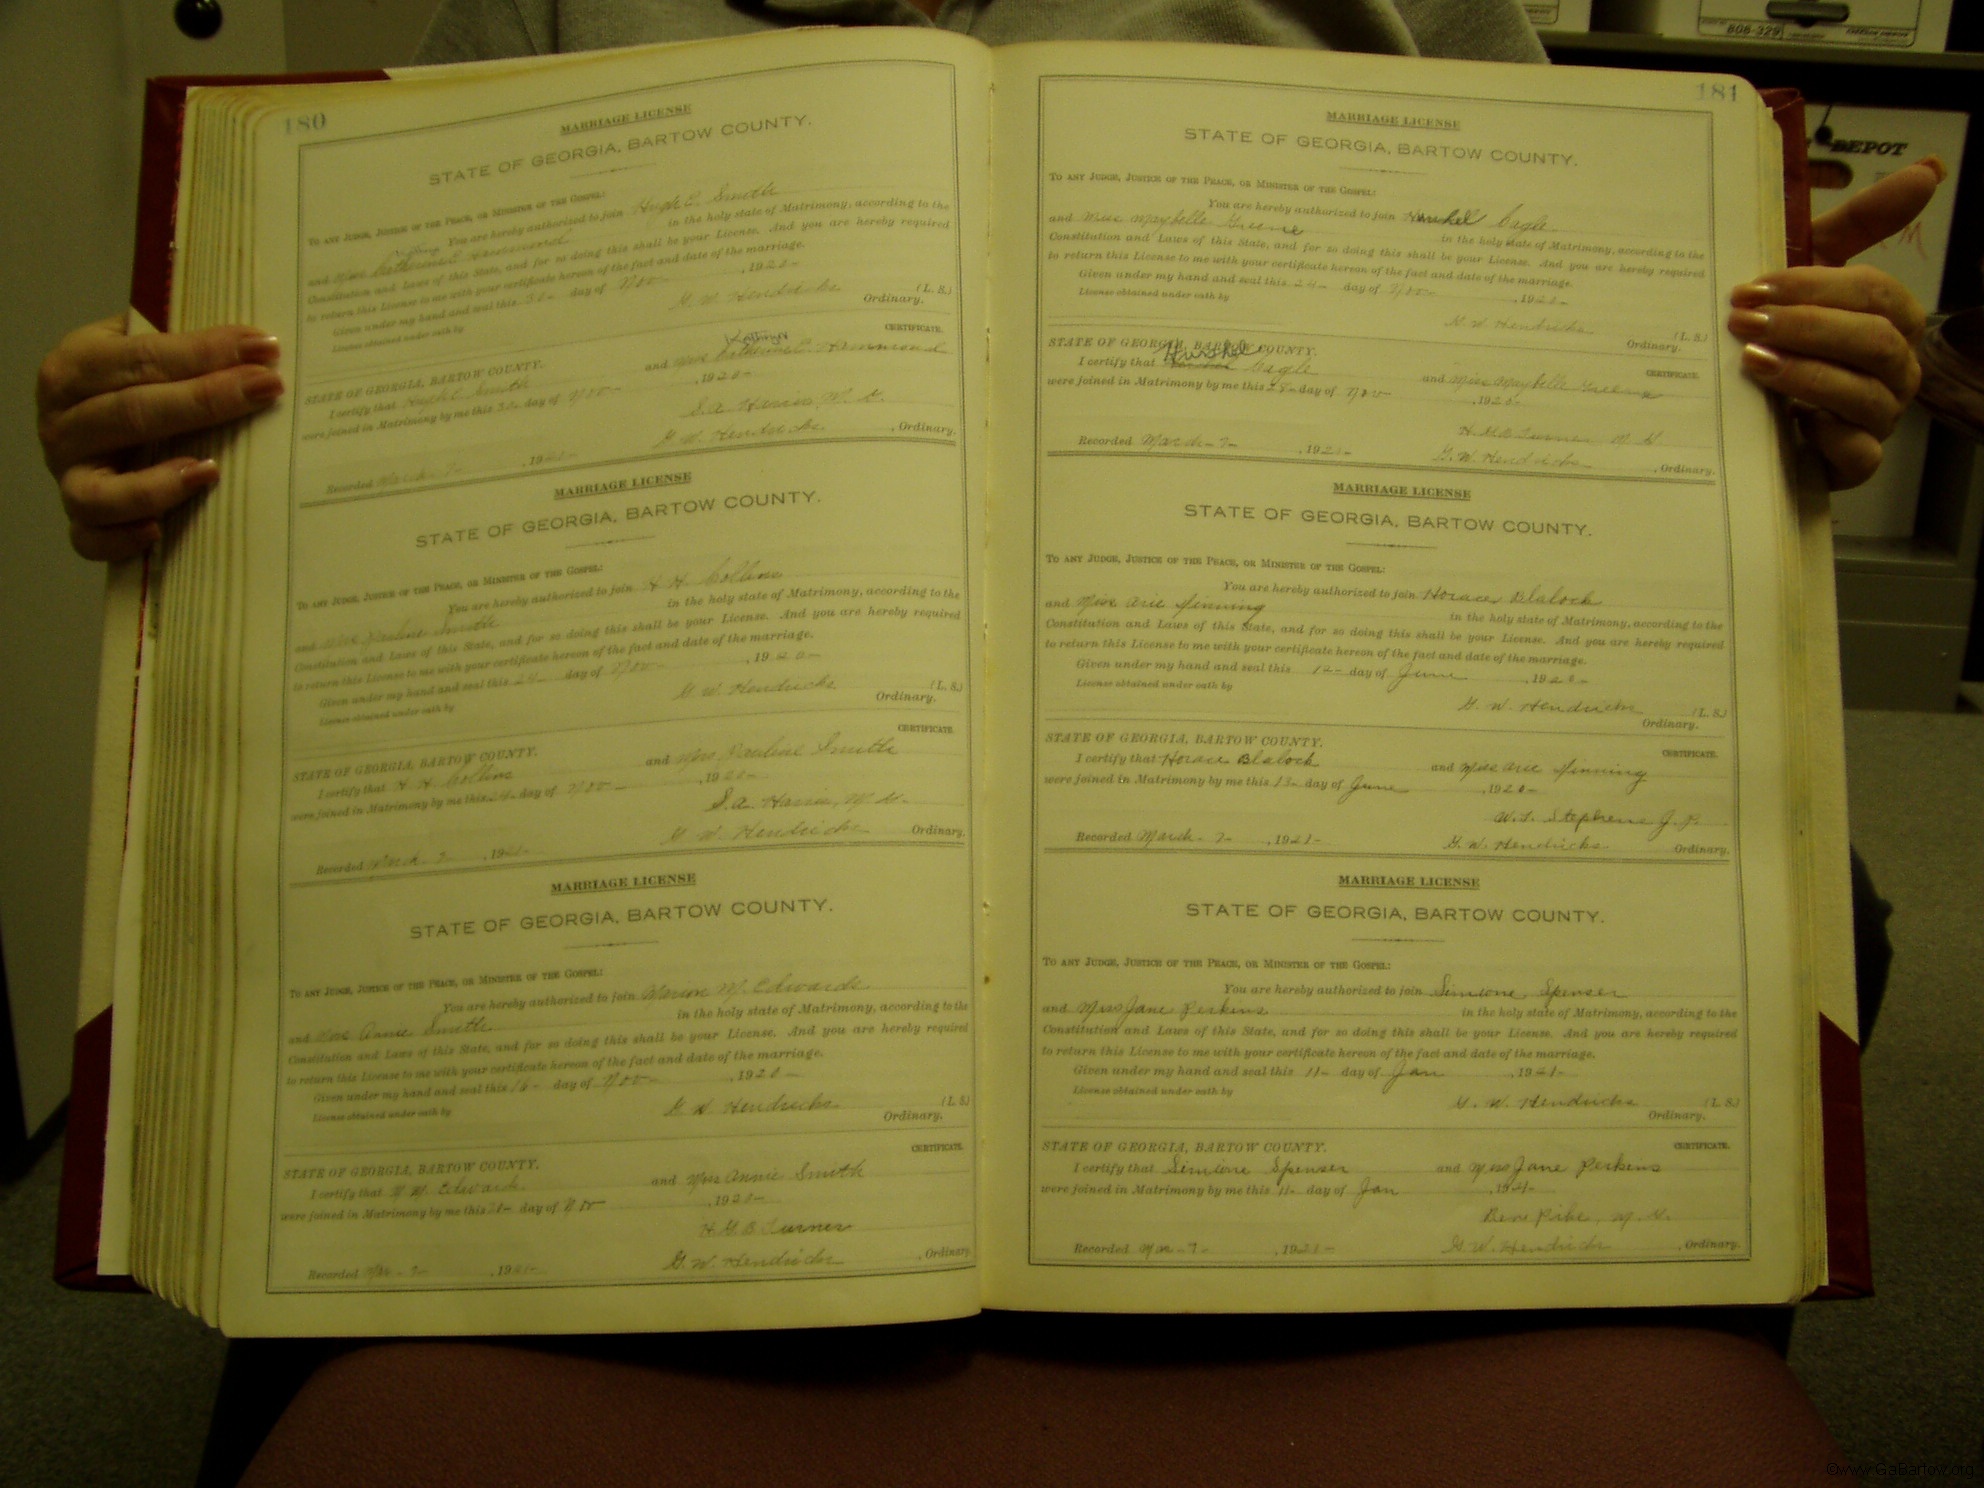 180
MARRIAGE LICENSE
STATE OF GEORGIA, BARTOW COUNTY.
TO ANY JUDGE, JUSTICE OF THE PEACE, OR MINISTER OF THE GOSPEL:
You are hereby authorized to join Hugh E. Smith
and Miss Catherine E Hammond in the holy state of Matrimony, according to the
Constitution and Laws of this State, and for so doing this shall be your License. And you are hereby required
to return this License to me with your certificate hereon of the fact and date of the marriage.
Given under my hand and seal this day of Nov , 1920
License obtained under oath by
G. W. Hendricks (L. S.)
Ordinary.
CERTIFICATE.
STATE OF GEORGIA, BARTOW COUNTY.
Kathryn
I certify that Hugh E. Smith and Miss Catherine E Hammond
were joined in Matrimony by me this day of Nov , 1920
S. A. Harris, M. G.
G. W. Hendricks , Ordinary.
Recorded March 7 , 1921
MARRIAGE LICENSE
STATE OF GEORGIA, BARTOW COUNTY.
TO ANY JUDGE, JUSTICE OF THE PEACE, OR MINISTER OF THE GOSPEL:
You are hereby authorized to join H H Collins
and Miss Pauline Smith in the holy state of Matrimony, according to the
Constitution and Laws of this State, and for so doing this shall be your License. And you are hereby required
to return this License to me with your certificate hereon of the fact and date of the marriage.
Given under my hand and seal this 24 day of Nov , 1920
License obtained under oath by
G. W. Hendricks (L. S.)
Ordinary.
CERTIFICATE.
STATE OF GEORGIA, BARTOW COUNTY.
I certify that H. H. Collins and Miss Pauline Smith
were joined in Matrimony by me this 24 day of Nov , 1920
S. A. Harris, M. G.
G. W. Hendricks Ordinary.
Recorded March 7 , 1921
MARRIAGE LICENSE
STATE OF GEORGIA, BARTOW COUNTY.
TO ANY JUDGE, JUSTICE OF THE PEACE, OR MINISTER OF THE GOSPEL:
You are hereby authorized to join Marion M. Edwards
and Miss Annie Smith in the holy state of Matrimony, according to the
Constitution and Laws of this State, and for so doing this shall be your License. And you are hereby required
to return this License to me with your certificate hereon of the fact and date of the marriage.
Given under my hand and seal this 16 day of Nov , 1920
License obtained under oath by
G. W. Hendricks (L. S.)
Ordinary.
CERTIFICATE.
STATE OF GEORGIA, BARTOW COUNTY.
I certify that M. M. Edwards and Miss Annie Smith
were joined in Matrimony by me this day of Nov , 1920
H. G. B Turner
G. W. Hendricks , Ordinary.
Recorded Mar 7 , 1921
181
MARRIAGE LICENSE
STATE OF GEORGIA, BARTOW COUNTY.
TO ANY JUDGE, JUSTICE OF THE PEACE, OR MINISTER OF THE GOSPEL:
You are hereby authorized to join Hurshel Cagle
and Miss Maybelle Greene in the holy state of Matrimony, according to the
Constitution and Laws of this State, and for so doing this shall be your License. And you are hereby required
to return this License to me with your certificate hereon of the fact and date of the marriage.
Given under my hand and seal this 24 day of Nov , 1920
License obtained under oath by
G. W. Hendricks (L. S.)
Ordinary.
STATE OF GEORGIA, BARTOW COUNTY.
CERTIFICATE.
I certify that Hurshel Cagle and Miss Maybelle Greene
were joined in Matrimony by me this day of Nov , 1920
H. G. B Turner M G
Recorded March 7 , 1921 G. W. Hendricks , Ordinary.
MARRIAGE LICENSE
STATE OF GEORGIA, BARTOW COUNTY.
TO ANY JUDGE, JUSTICE OF THE PEACE, OR MINISTER OF THE GOSPEL:
You are hereby authorized to join Horace Blalock
and Miss Arie Pinning in the holy state of Matrimony, according to the
Constitution and Laws of this State, and for so doing this shall be your License. And you are hereby required
to return this License to me with your certificate hereon of the fact and date of the marriage.
Given under my hand and seal this 12 day of June , 1920
License obtained under oath by
G. W. Hendricks (L. S.)
Ordinary.
STATE OF GEORGIA, BARTOW COUNTY.
CERTIFICATE.
I certify that Horace Blalock and Miss Arie Pinning
were joined in Matrimony by me this 13 day of June , 1920
W. L. Stephens J. P.
Recorded March 7 , 1921 G. W. Hendricks Ordinary.
MARRIAGE LICENSE
STATE OF GEORGIA, BARTOW COUNTY.
TO ANY JUDGE, JUSTICE OF THE PEACE, OR MINISTER OF THE GOSPEL:
You are hereby authorized to join Simione Spenser
and Miss Jane Perkins in the holy state of Matrimony, according to the
Constitution and Laws of this State, and for so doing this shall be your License. And you are hereby required
to return this License to me with your certificate hereon of the fact and date of the marriage.
Given under my hand and seal this 11 day of Jan , 1921
License obtained under oath by
G. W. Hendricks (L. S.)
Ordinary.
STATE OF GEORGIA, BARTOW COUNTY.
CERTIFICATE.
I certify that Simione Spenser and Miss Jane Perkins
were joined in Matrimony by me this 11 day of Jan , 1921
Ben Pike, M. G.
Recorded Mar 7 , 1921 G. W. Hendricks , Ordinary.
808-329
DEPOT
©www.GaBartow.org